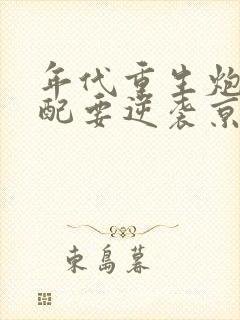 年代重生炮
配要逆袭京
东岛暮